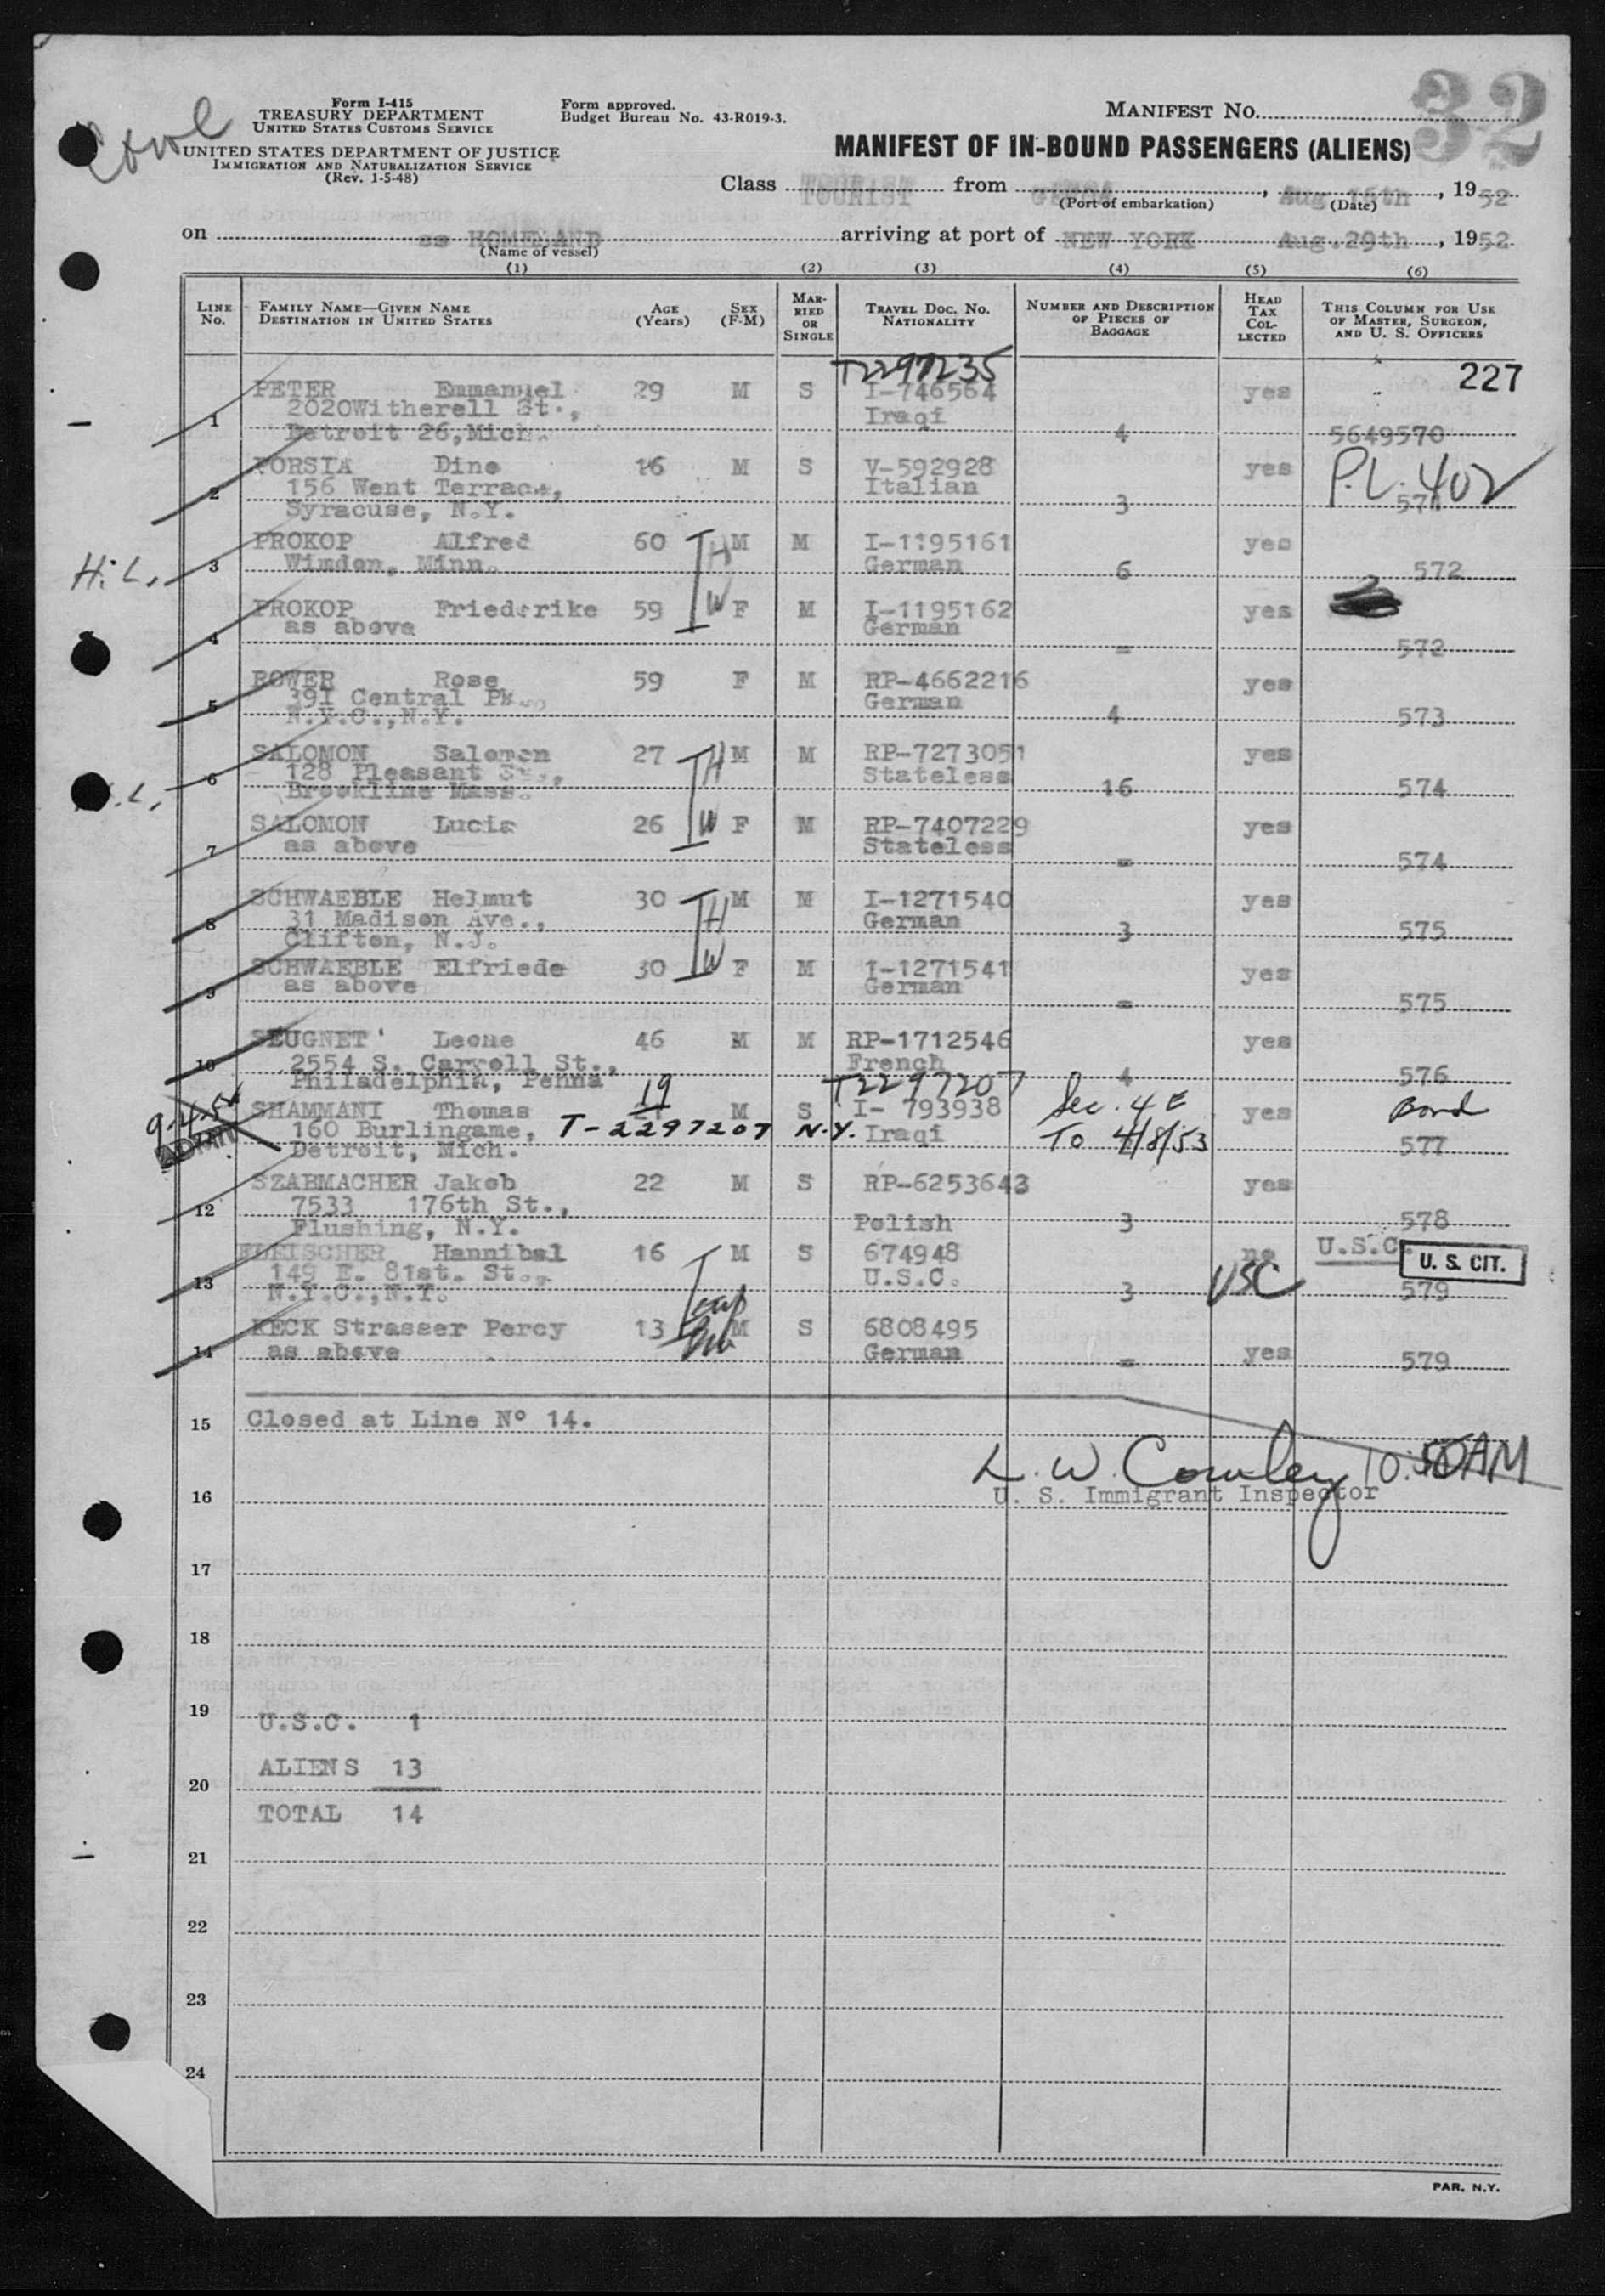 Form I-415
TREASURY DEPARTMENT
UNITED STATES CUSTOMS SERVICE
UNITED STATES DEPARTMENT OF JUSTICE
IMMIGRATION AND NATURALIZATION SERVICE
(Rev. 1-5-48)
Form approved.
Budget Bureau No. 43-R019-3.
MANIFEST NO.
32
MANIFEST OF IN-BOUND PASSENGERS (ALIENS)
Class TOURIST from GENOA, Aug. 16th, 1952
(Port of embarkation) (Date)
on ss HOMELAND arriving at port of NEW YORK Aug.29th, 1952
(Name of vessel)
(1) (2) (3) (4) (5) (6)
LINE No. FAMILY NAME—GIVEN NAME DESTINATION IN UNITED STATES AGE (Years) SEX (F-M) MARRIED OR SINGLE TRAVEL DOC. NO. NATIONALITY NUMBER AND DESCRIPTION OF PIECES OF BAGGAGE HEAD TAX COLLECTED THIS COLUMN FOR USE OF MASTER, SURGEON, AND U. S. OFFICERS
T2297235 227
PETER Emmanuel 29 M S I-746564 yes
2020Witherell St., Iraqi
1 Detroit 26,Mich. 4 5649570
PORSIA Dino 16 M S V-592928 yes P.L. 402
2 156 Went Terrace, Italian 3 571
Syracuse, N.Y.
PROKOP Alfred 60 H M M I-1195161 yes
H.L. 3 Windom, Minn. German 6 572
PROKOP Friederike 59 W F M I-1195162 yes
as above German
4 = 572
ROWER Rose 59 F M RP-4662216 yes
391 Central Pk. German
5 N.Y.C.,N.Y. 4 573
SALOMON Salomon 27 H M M RP-7273051 yes
128 Pleasant St., Stateless
6 Brookline Mass. 16 574
SALOMON Lucia 26 W F M RP-7407229 yes
7 as above Stateless = 574
SCHWAEBLE Helmut 30 H M M I-1271540 yes
8 31 Madison Ave., German 3 575
Clifton, N.J.
SCHWAEBLE Elfriede 30 W F M I-1271541 yes
9 as above German = 575
SEUGNET Leone 46 M M RP-1712546 yes
10 2554 S. Carroll St., French 4 576
Philadelphia, Penna T2297207
19
SHAMMANI Thomas M S I- 793938 Sec. 4 E yes Bond
160 Burlingame, T-2297207 N.Y. Iraqi To 4/8/53 577
Detroit, Mich.
SZABMACHER Jakob 22 M S RP-6253643 yes
12 7533 176th St., Polish 3 578
Flushing, N.Y.
FLEISCHER Hannibal 16 M S 674948 no U.S.C. U. S. CIT.
13 149 E. 81st. St., U.S.C. 3 USC 579
N.Y.C.,N.Y.
KECK Strasser Percy 13 M S 6808495
14 as above German = yes 579
15 Closed at Line Nº 14.
L. W. Cowley 10:50AM
16 U. S. Immigrant Inspector
17
18
19 U.S.C. 1
20 ALIENS 13
TOTAL 14
21
22
23
24
PAR. N.Y.